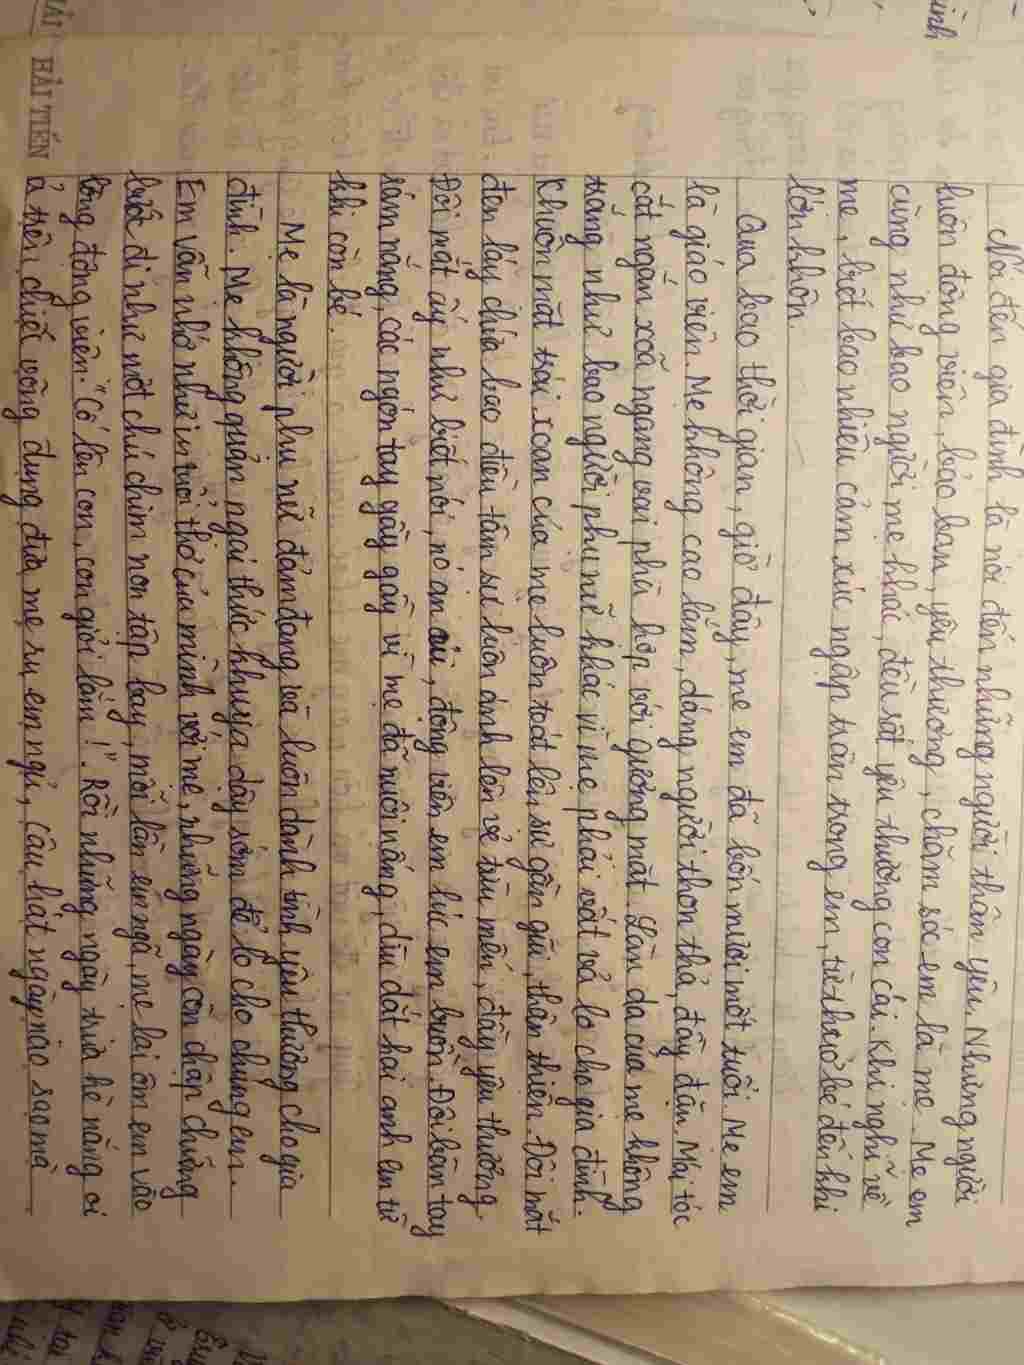 Nói đến gia đình là nói đến những người thân yêu. Nhưng người
luôn động viên, bảo ban, yêu thương, chăm sóc em là mẹ. Mẹ em
cũng như bao người mẹ khác, đều rất yêu thương con cái. Khi nghĩ về
mẹ, biết bao nhiêu cảm xúc ngập tràn trong em, từ thuở bé đến khi
lớn khôn.
Qua bao thời gian, giờ đây, mẹ em đã bốn mươi mốt tuổi. Mẹ em
là giáo viên. Mẹ không cao lắm, dáng người thon thả, đầy đặn. Mái tóc
cắt ngắn xoã ngang vai phù hợp với gương mặt. Làn da của mẹ không
trắng như bao người phụ nữ khác vì mẹ phải vất vả lo cho gia đình.
Khuôn mặt trái xoan của mẹ luôn toát lên sự gần gũi, thân thiện. Đôi mắt
đen láy chứa bao điều tâm sự luôn ánh lên vẻ trìu mến, đầy yêu thương.
Đôi mắt ấy như biết nói, nó an ủi, động viên em lúc em buồn. Đôi bàn tay
rám nắng, các ngón tay gầy gầy vì mẹ đã nuôi nấng, dìu dắt hai anh em từ
khi còn bé.
Mẹ là người phụ nữ đảm đang và luôn dành tình yêu thương cho gia
đình. Mẹ không quản ngại thức khuya dậy sớm để lo cho chúng em.
Em vẫn nhớ như in tuổi thơ của mình với mẹ, những ngày còn chập chững
bước đi như một chú chim non tập bay, mỗi lần em ngã, mẹ lại ôm em vào
lòng động viên: "Cố lên con, con giỏi lắm!". Rồi những ngày trưa hè nắng oi
ả trên chiếc võng đung đưa, mẹ ru em ngủ, câu hát ngày nào sao mà
HẢI TIẾN